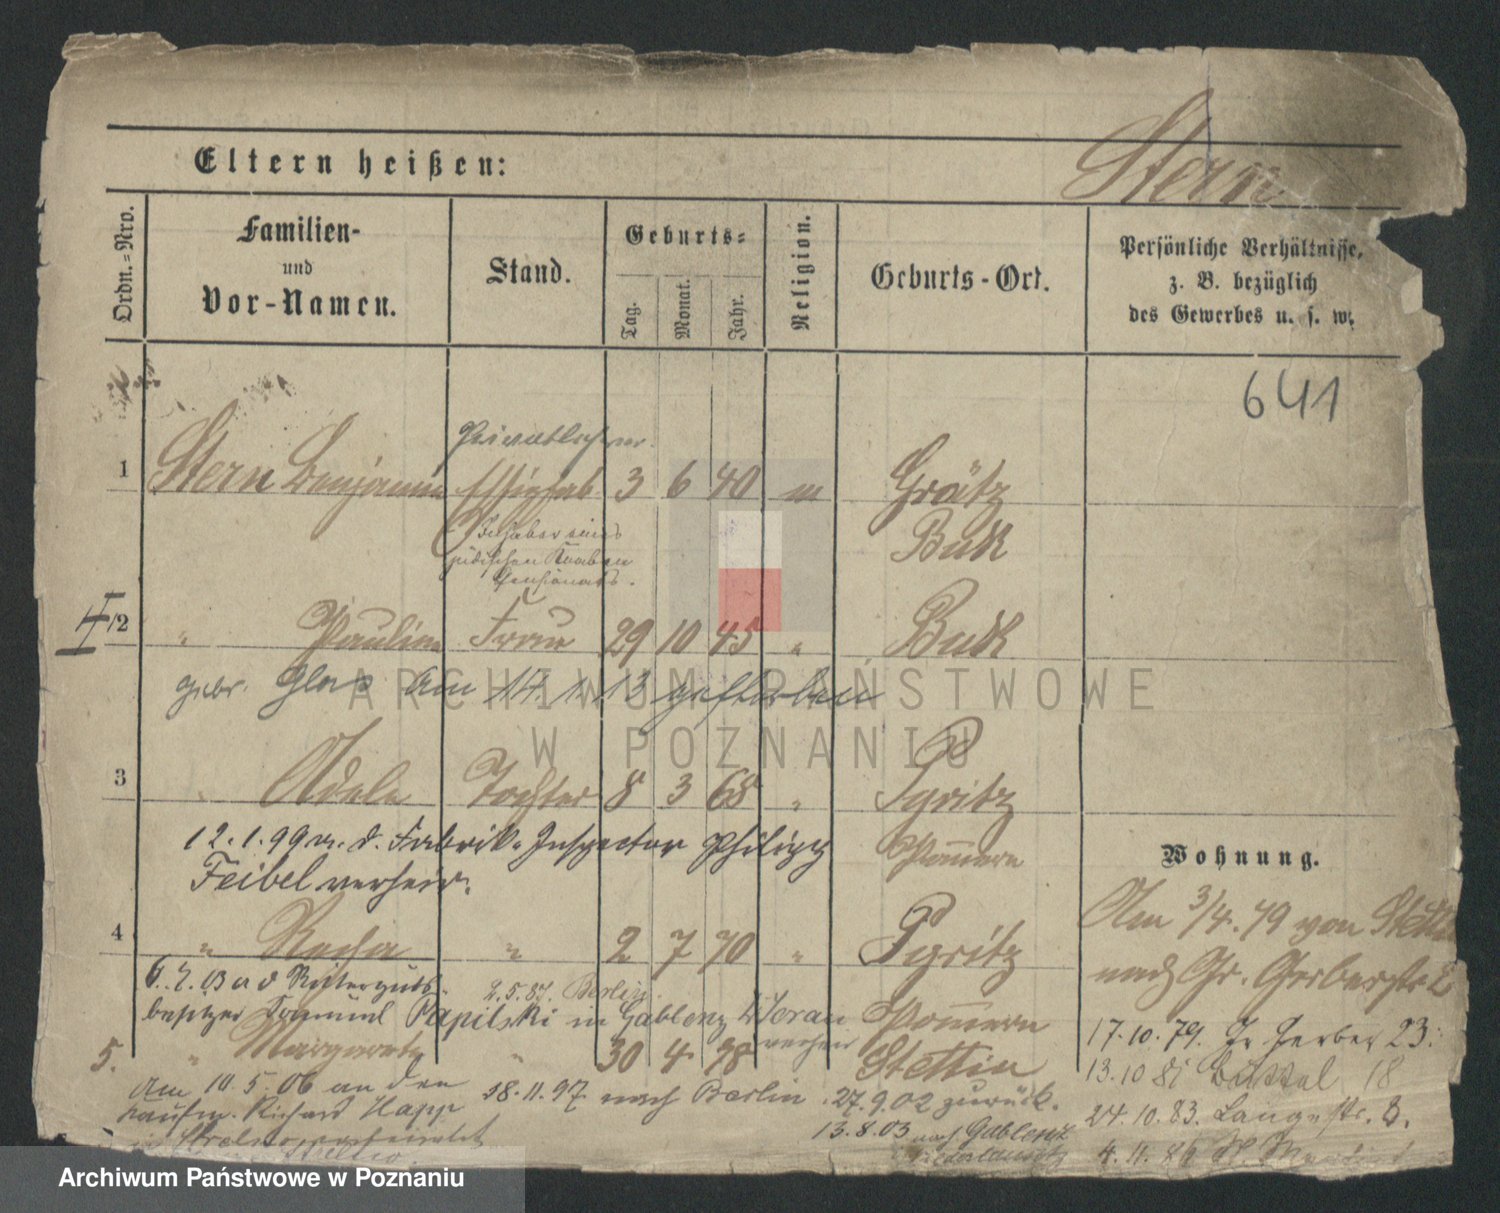 Eltern heißen:
Stern
Ordn.=Nro.
Familien-
und
Vor-Namen.
Stand.
Geburts=
Tag.
Monat.
Jahr.
Religion.
Geburts-Ort.
Persönliche Verhältnisse,
z. B. bezüglich
des Gewerbes u. s. w.
641
Privatlehrer
1 Stern Benjamin 3 6 40 m Grätz
Buk
Inhaber eines
jüdischen Knaben
Pensionats.
2 " Pauline Frau 29 10 45 " Buk
gebr. Glas am 14. 1. 13 gestorben
ARCHIWUM PAŃSTWOWE
W POZNANIU
3 " Adele Tochter 8 3 68 " Pyritz
12.1.99 m. d. Fabrik-Inspector Philipp
Feibel verheir.
Pommern
Wohnung.
Am 3/4. 79 von Stettin
4 " Recha " 2 7 70 " Pyritz
nach Gr. Gerberstr.
6.7.03 a d Ritterguts-
2.5.87. Berlin.
besitzer Samuel Papilski in Gablenz
Pommern
17.10.79. Gr Gerber 23.
verheir
5. " Margarete " 30 4 78 Stettin
13.10 81 18
am 10.5.06 an den
18.11.97 nach Berlin
27.9.02 zurück.
24.10.83. Langestr. 3.
Kaufm. Richard Happ
13.8.03 nach Gablenz
Niederlausitz
4.11.86
Archiwum Państwowe w Poznaniu